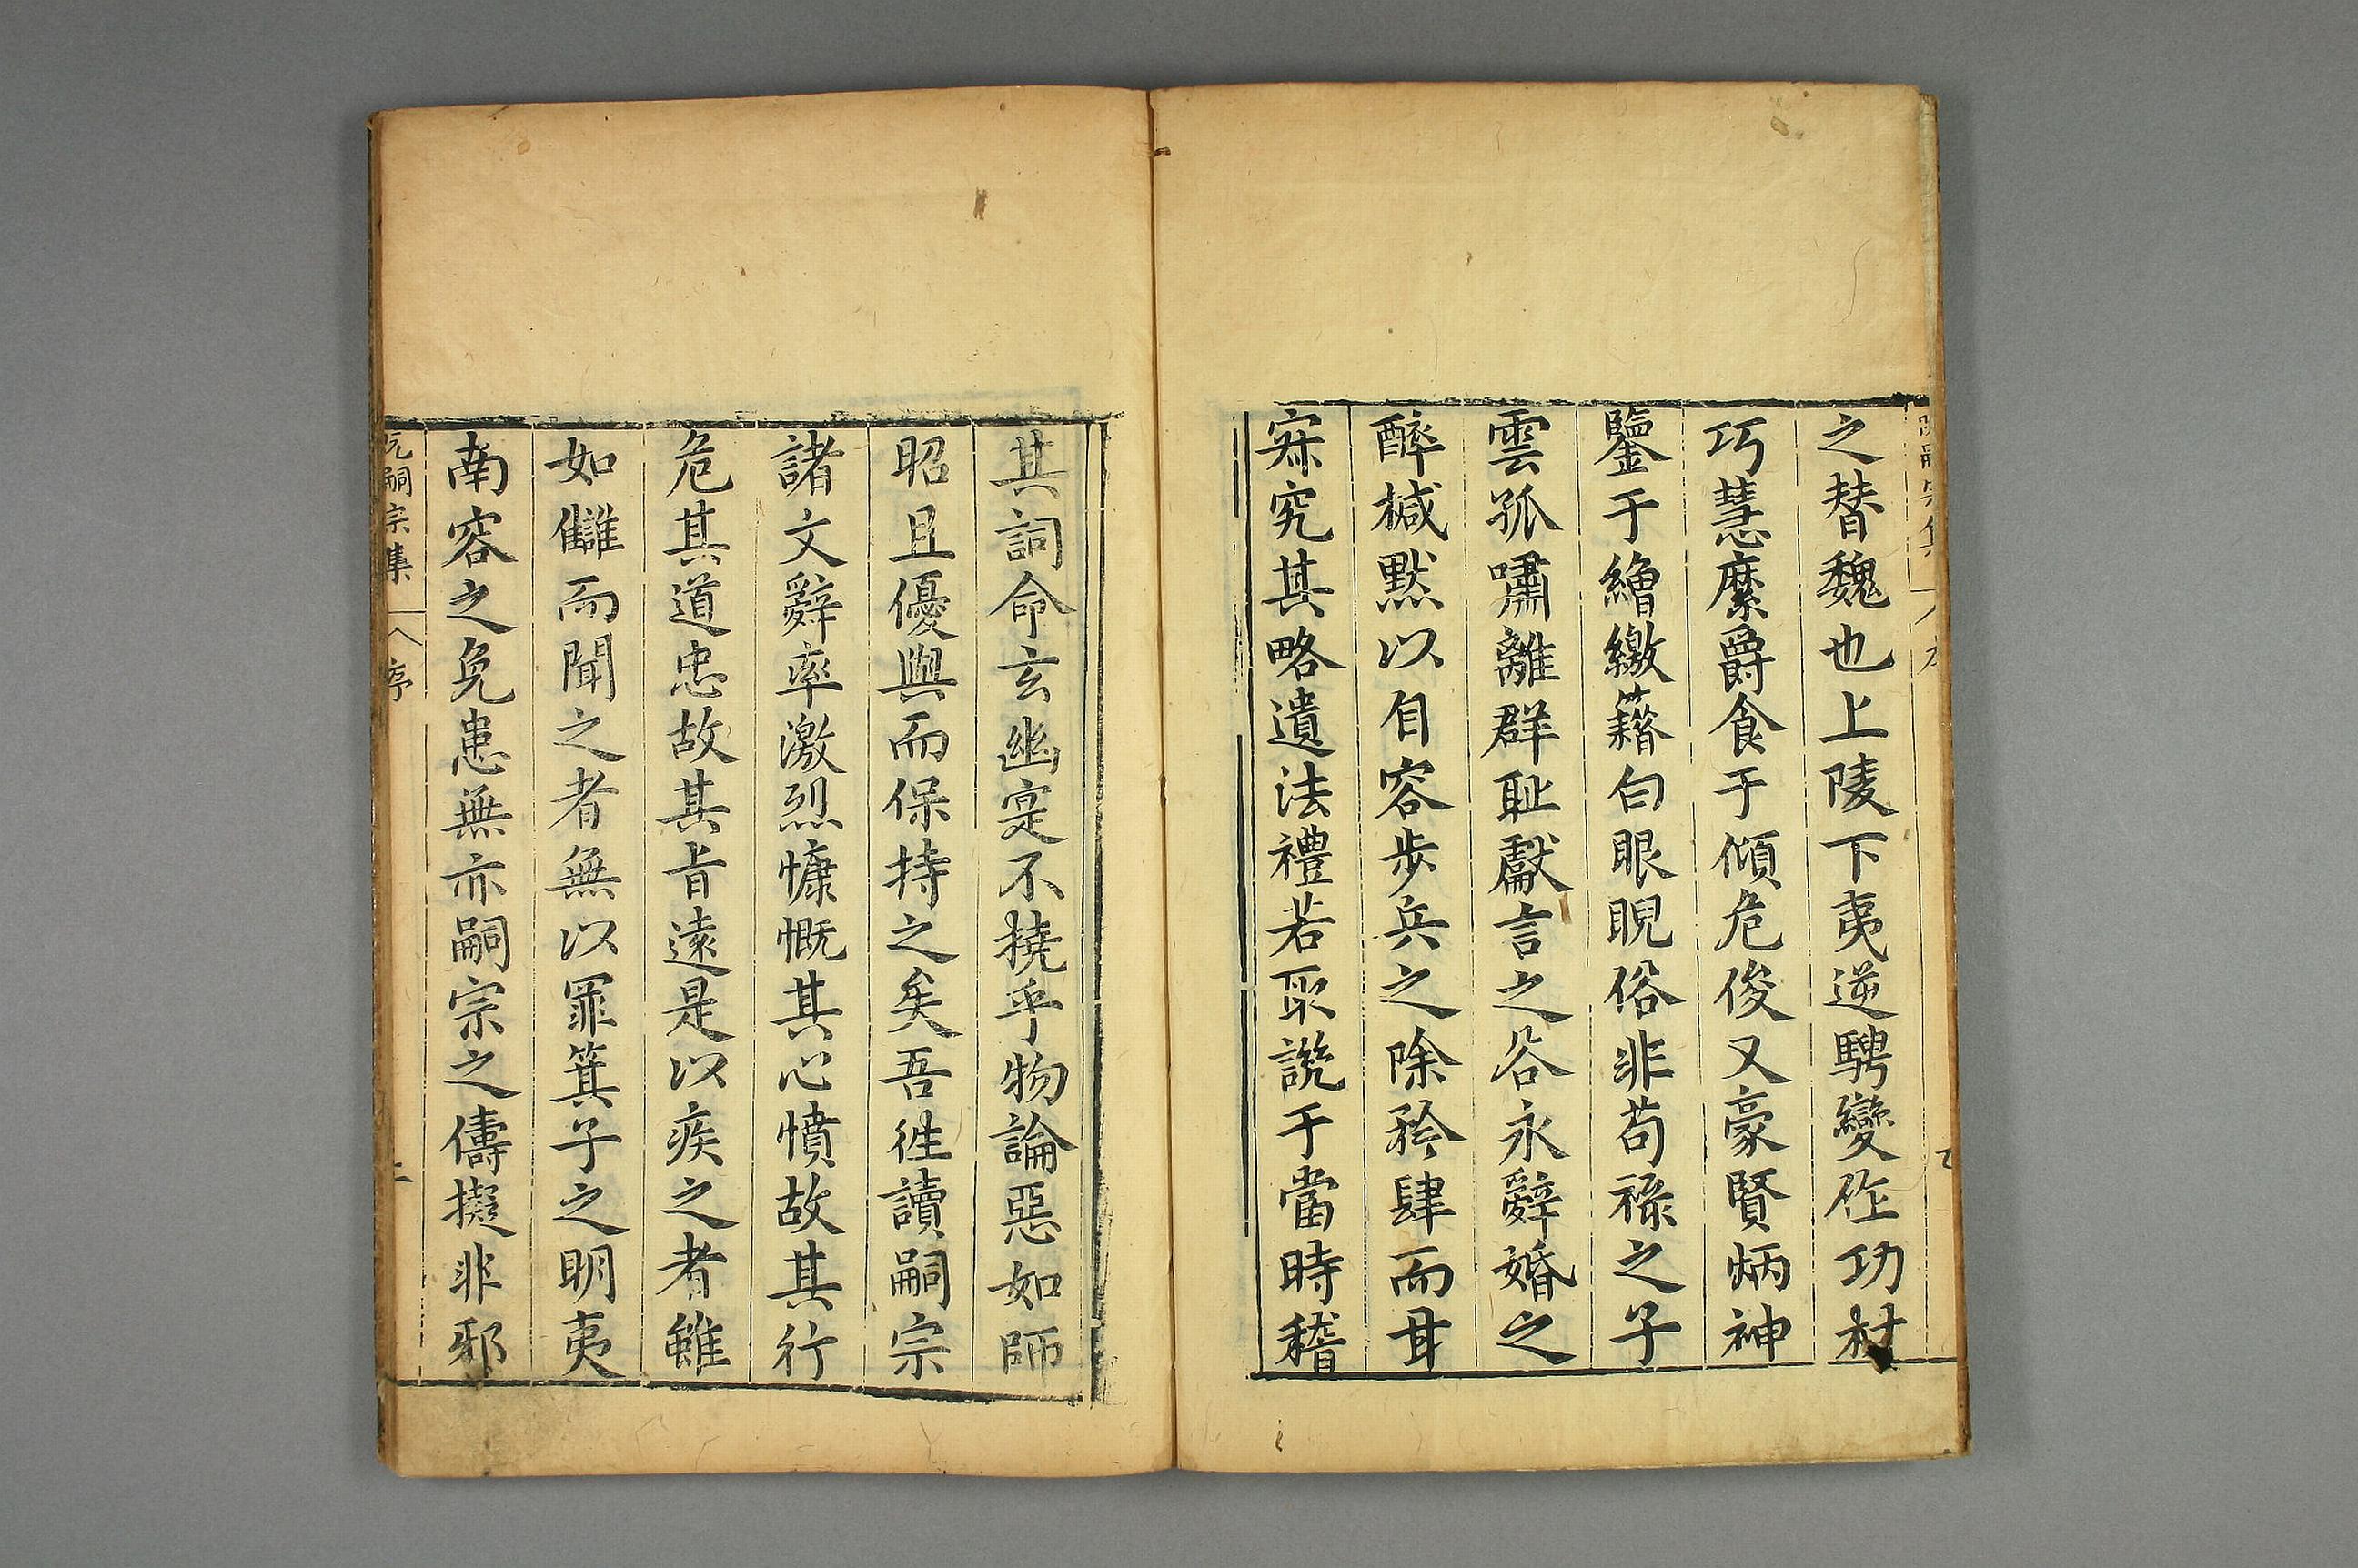 之替魏也上陵下夷逆騁變作功材
巧慧縻爵食于傾危俊乂豪賢炳神
鑒于繒繳藉白眼睨俗非苟祿之子
雲孤嘯離群耻獻言之谷永辭婚之
醉緘默以自容步兵之除矜肆而甘
寐究其略遺法禮若取讒于當時稽
其詞命玄幽寔不撓乎物論惡如師
昭且優與而保持之矣吾徃讀嗣宗
諸文辭率激烈慷慨其心憤故其行
危其道忠故其旨遠是以疾之者雖
如讎而聞之者無以罪箕子之明夷
南容之免患無亦嗣宗之儔擬非邪
阮嗣宗集
序